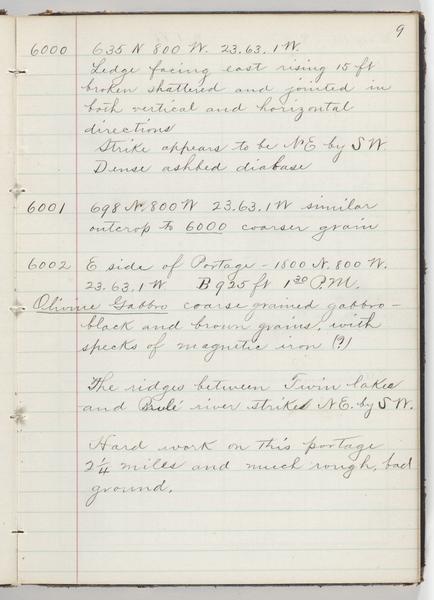 9
6000 635 N 800 W. 23.63.1 W.
Ledge facing east rising 15 ft
broken shattered and jointed in
both vertical and horizontal
directions
Strike appears to be N E by S W
Dense ashbed diabase
6001 698 N. 800 W 23.63.1 W similar
outcrop to 6000 coarser grain
6002 E side of Portage - 1800 N. 800 W.
23.63.1 W B 925 ft 1 30 P.M.
Olivine Gabbro coarse grained gabbro -
black and brown grains, with
specks of magnetic iron (?)
The ridges between Twin lakes
and Brulé river strikes N E. by S W.
Hard work on this portage
2 1/4 miles and much rough, bad
ground.